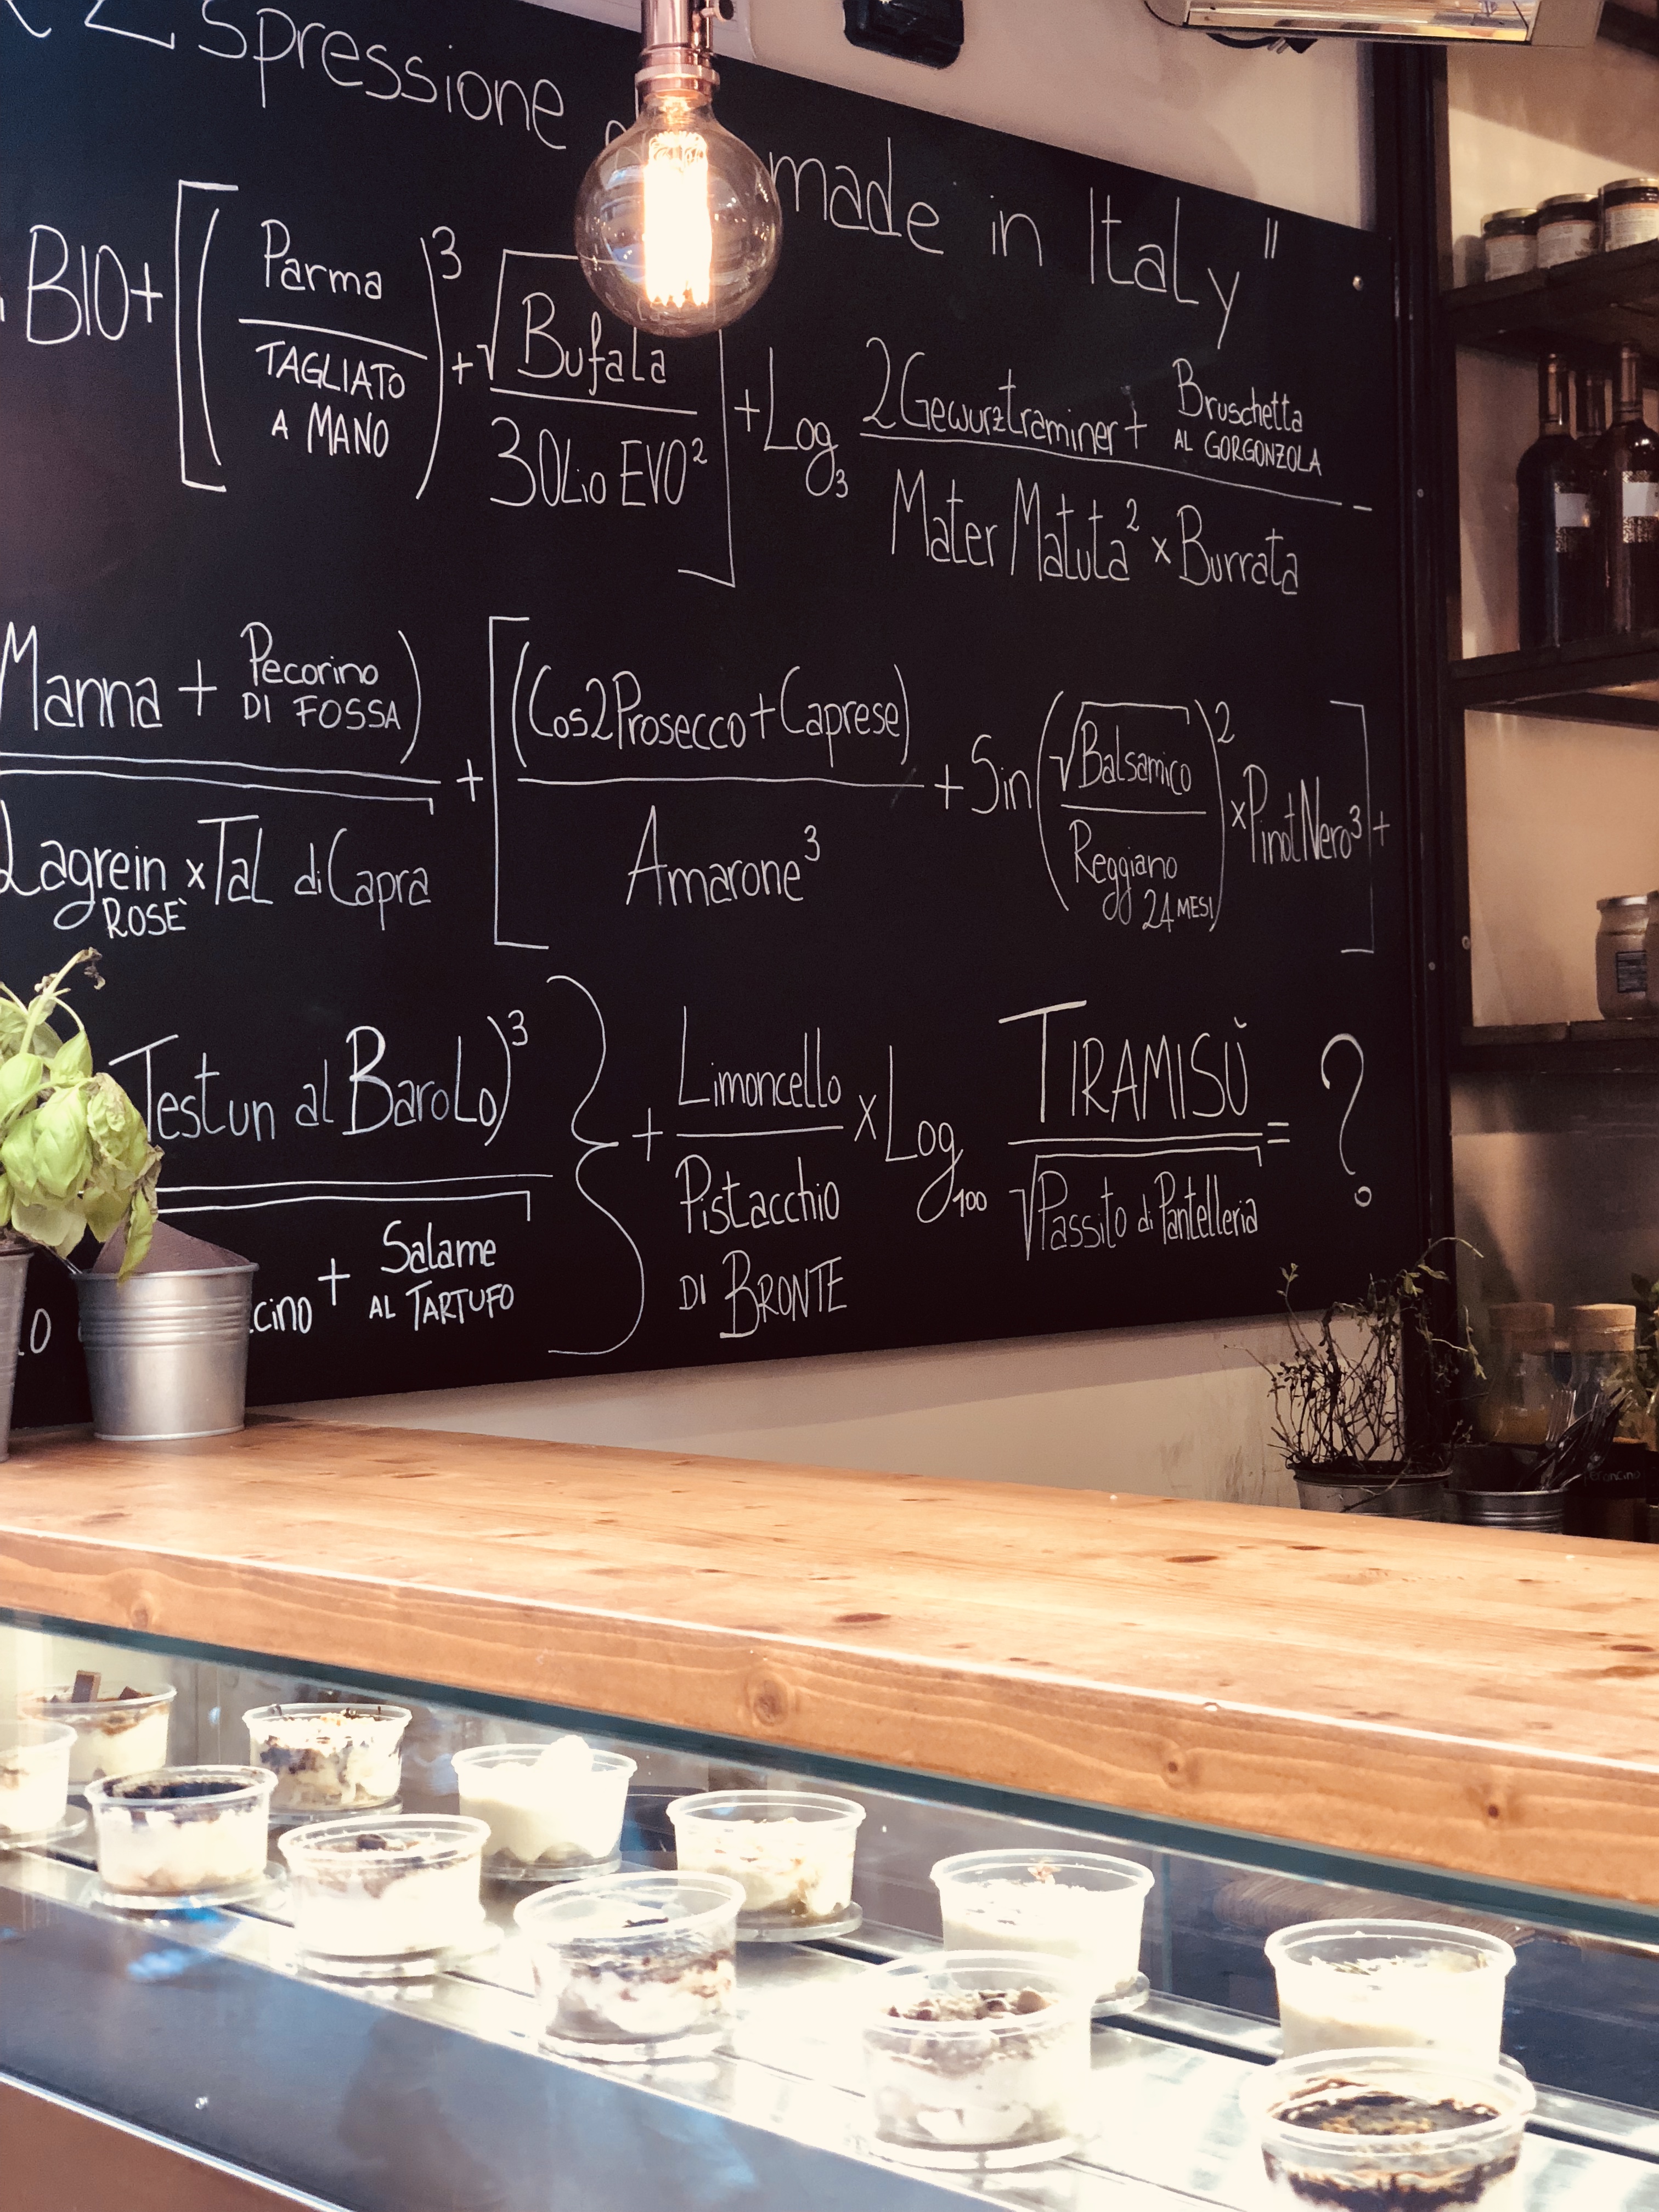 Espressione made in Italy"
BIO + [(Parma / TAGLIATO A MANO)³ + √Bufala / 3 OLio EVO²] + Log₃ 2Gewurztraminer + Bruschetta AL GORGONZOLA / Mater Matuta² x Burrata
Manna + Pecorino DI FOSSA) / Lagrein ROSÈ x Tal di Capra + [(Cos2Prosecco + Caprese) / Amarone³ + Sin(√Balsamico / Reggiano 24 MESI)² x Pinot Nero³] +
Testun al BaroLo)³ / + Salame AL TARTUFO } + Limoncello / Pistacchio DI BRONTE x Log₁₀₀ TIRAMISÙ / √Passito di Pantelleria = ?